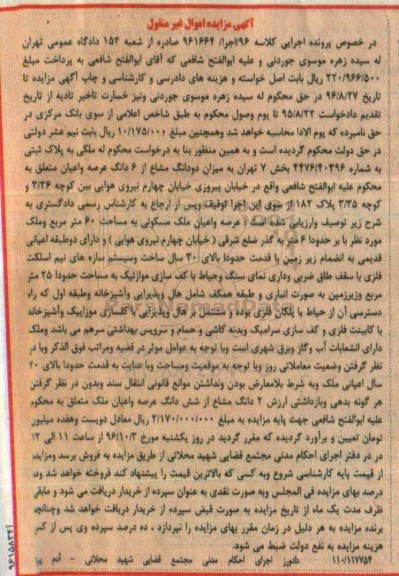 آگهی مزایده اموال غیر منقول
در خصوص پرونده اجرایی کلاسه ۹۶/اجرا/ ۹۶۱۶۶۴ صادره از شعبه ۱۵۳ دادگاه عمومی تهران
له سیده زهره موسوی جوردنی و علیه ابوالفتح شافعی که آقای ابوالفتح شافعی به پرداخت مبلغ
۲۲۰/۹۶۶/۵۰۰ ریال بابت اصل خواسته و هزینه های دادرسی و کارشناسی و چاپ آگهی مزایده تا
تاریخ ۹۶/۸/۲۷ در حق محکوم له سیده زهره موسوی جوردنی ونیز خسارت تاخیر تادیه از تاریخ
تقدیم دادخواست ۹۵/۸/۲۲ تا یوم وصول محکوم به طبق شاخص اعلامی از سوی بانک مرکزی در
حق نامبرده که یوم الادا محاسبه خواهد شد وهمچنین مبلغ ۱۰/۱۷۵/۰۰۰ ریال بابت نیم عشر دولتی
در حق دولت محکوم گردیده است و به همین منظور بنا به درخواست محکوم له ملکی به پلاک ثبتی
به شماره ۴۴۷۶/۴۰۳۹۶ بخش ۷ تهران به میزان دودانگ مشاع از ۶ دانگ عرصه واعیان متعلق به
محکوم علیه ابوالفتح شافعی واقع در خیابان پیروزی خیابان چهارم نیروی هوایی بین کوچه ۳/۳۶ و
کوچه ۳/۳۵ پلاک ۱۸۲ از سوی این اجرا توقیف وپس از ارجاع به کارشناس رسمی دادگستری به
شرح زیر توصیف وارزیابی شده است : عرصه واعیان ملک مسکونی به مساحت ۶۰ متر مربع وملک
مورد نظر با بر حدودا ۶ متر به گذر ضلع شرقی ( خیابان چهارم نیروی هوایی ) و دارای دوطبقه اعیانی
قدیمی به انضمام زیر زمین با قدمت حدودا بالای ۳۰ سال ساخت وسیستم سازه های نیم اسکلت
فلزی با سقف طاق ضربی ودارای نمای سنگ وحیاط با کف سازی موزائیک به مساحت حدودا ۲۵ متر
مربع وزیرزمین به صورت انباری و طبقه همکف شامل هال وپذیرایی وآشپزخانه وطبقه اول که راه
دسترسی آن از حیاط با پلکان فلزی بوده و مشتمل بر هال وپذیرایی با کفسازی موزاییک وآشپزخانه
با کابینت فلزی و کف سازی سرامیک وبدنه کاشی و حمام و سرویس بهداشتی سرهم می باشد وملک
دارای انشعابات آب وگاز وبرق شهری است وبا توجه به عوامل موثر در قضیه ومراتب فوق الذکر وبا در
نظر گرفتن وضعیت معاملاتی روز وبا توجه به موقعیت ومساحت وبا عنایت به قدمت حدودا بالای ۴۰
سال اعیانی ملک وبه شرط بلامعارض بودن ونداشتن موانع قانونی انتقال سند وبدون در نظر گرفتن
هر گونه بدهی وبازداشتی ارزش ۲ دانگ مشاع از شش دانگ عرصه واعیان ملک متعلق به محکوم
علیه ابوالفتح شافعی جهت پایه مزایده به مبلغ ۲/۱۷۰/۰۰۰/۰۰۰ ریال معادل دویست وهفده میلیون
تومان تعیین و برآورد گردیده که مقرر گردید در روز یکشنبه مورخ ۹۶/۱۰/۳ از ساعت ۱۱ الی ۱۲
در در دفتر اجرای احکام مدنی مجتمع قضایی شهید محلاتی از طریق مزایده به فروش برسد ومزایده
از قیمت پایه کارشناسی شروع وبه کسی که بالاترین قیمت را پیشنهاد کند فروخته خواهد شد وده
درصد بهای مزایده فی المجلس وبه صورت نقدی به عنوان سپرده از خریدار دریافت می شود و مابقی
ظرف مدت یک ماه از تاریخ مزایده به صورت قبض سپرده از خریدار دریافت خواهد شد وچنانچه
برنده مزایده به هر دلیل در زمان مقرر بهای مزایده را نپردازد ، ده درصد سپرده وی پس از کسر
هزینه مزایده به نفع دولت ضبط می شود.
۱۱۰/۱۱۷۷۵۴ دادورز اجرای احکام مدنی مجتمع قضایی شهید محلاتی -
۹۶۱۵۸۳۴۱